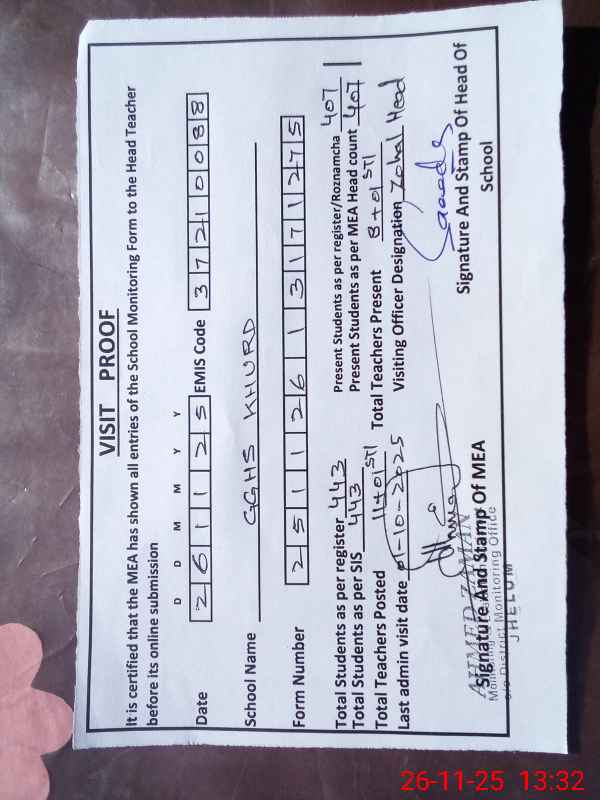 VISIT PROOF
It is certified that the MEA has shown all entries of the School Monitoring Form to the Head Teacher
before its online submission
D D M M Y Y
Date 2 6 1 1 2 5 EMIS Code 3 7 2 1 0 0 8 8
School Name GGHS KHURD
Form Number 2 5 1 1 2 6 1 3 1 7 1 2 7 5
Total Students as per register 443 Present Students as per register/Roznamcha 407
Total Students as per SIS 443 Present Students as per MEA Head count 407
Total Teachers Posted 11+01 STI Total Teachers Present 8+01 STI
Last admin visit date 01-10-2025 Visiting Officer Designation Head
Signature And Stamp Of MEA Signature And Stamp Of Head Of
School
AHMED ZAMAN
District Monitoring Office
JHELUM
26-11-25 13:32